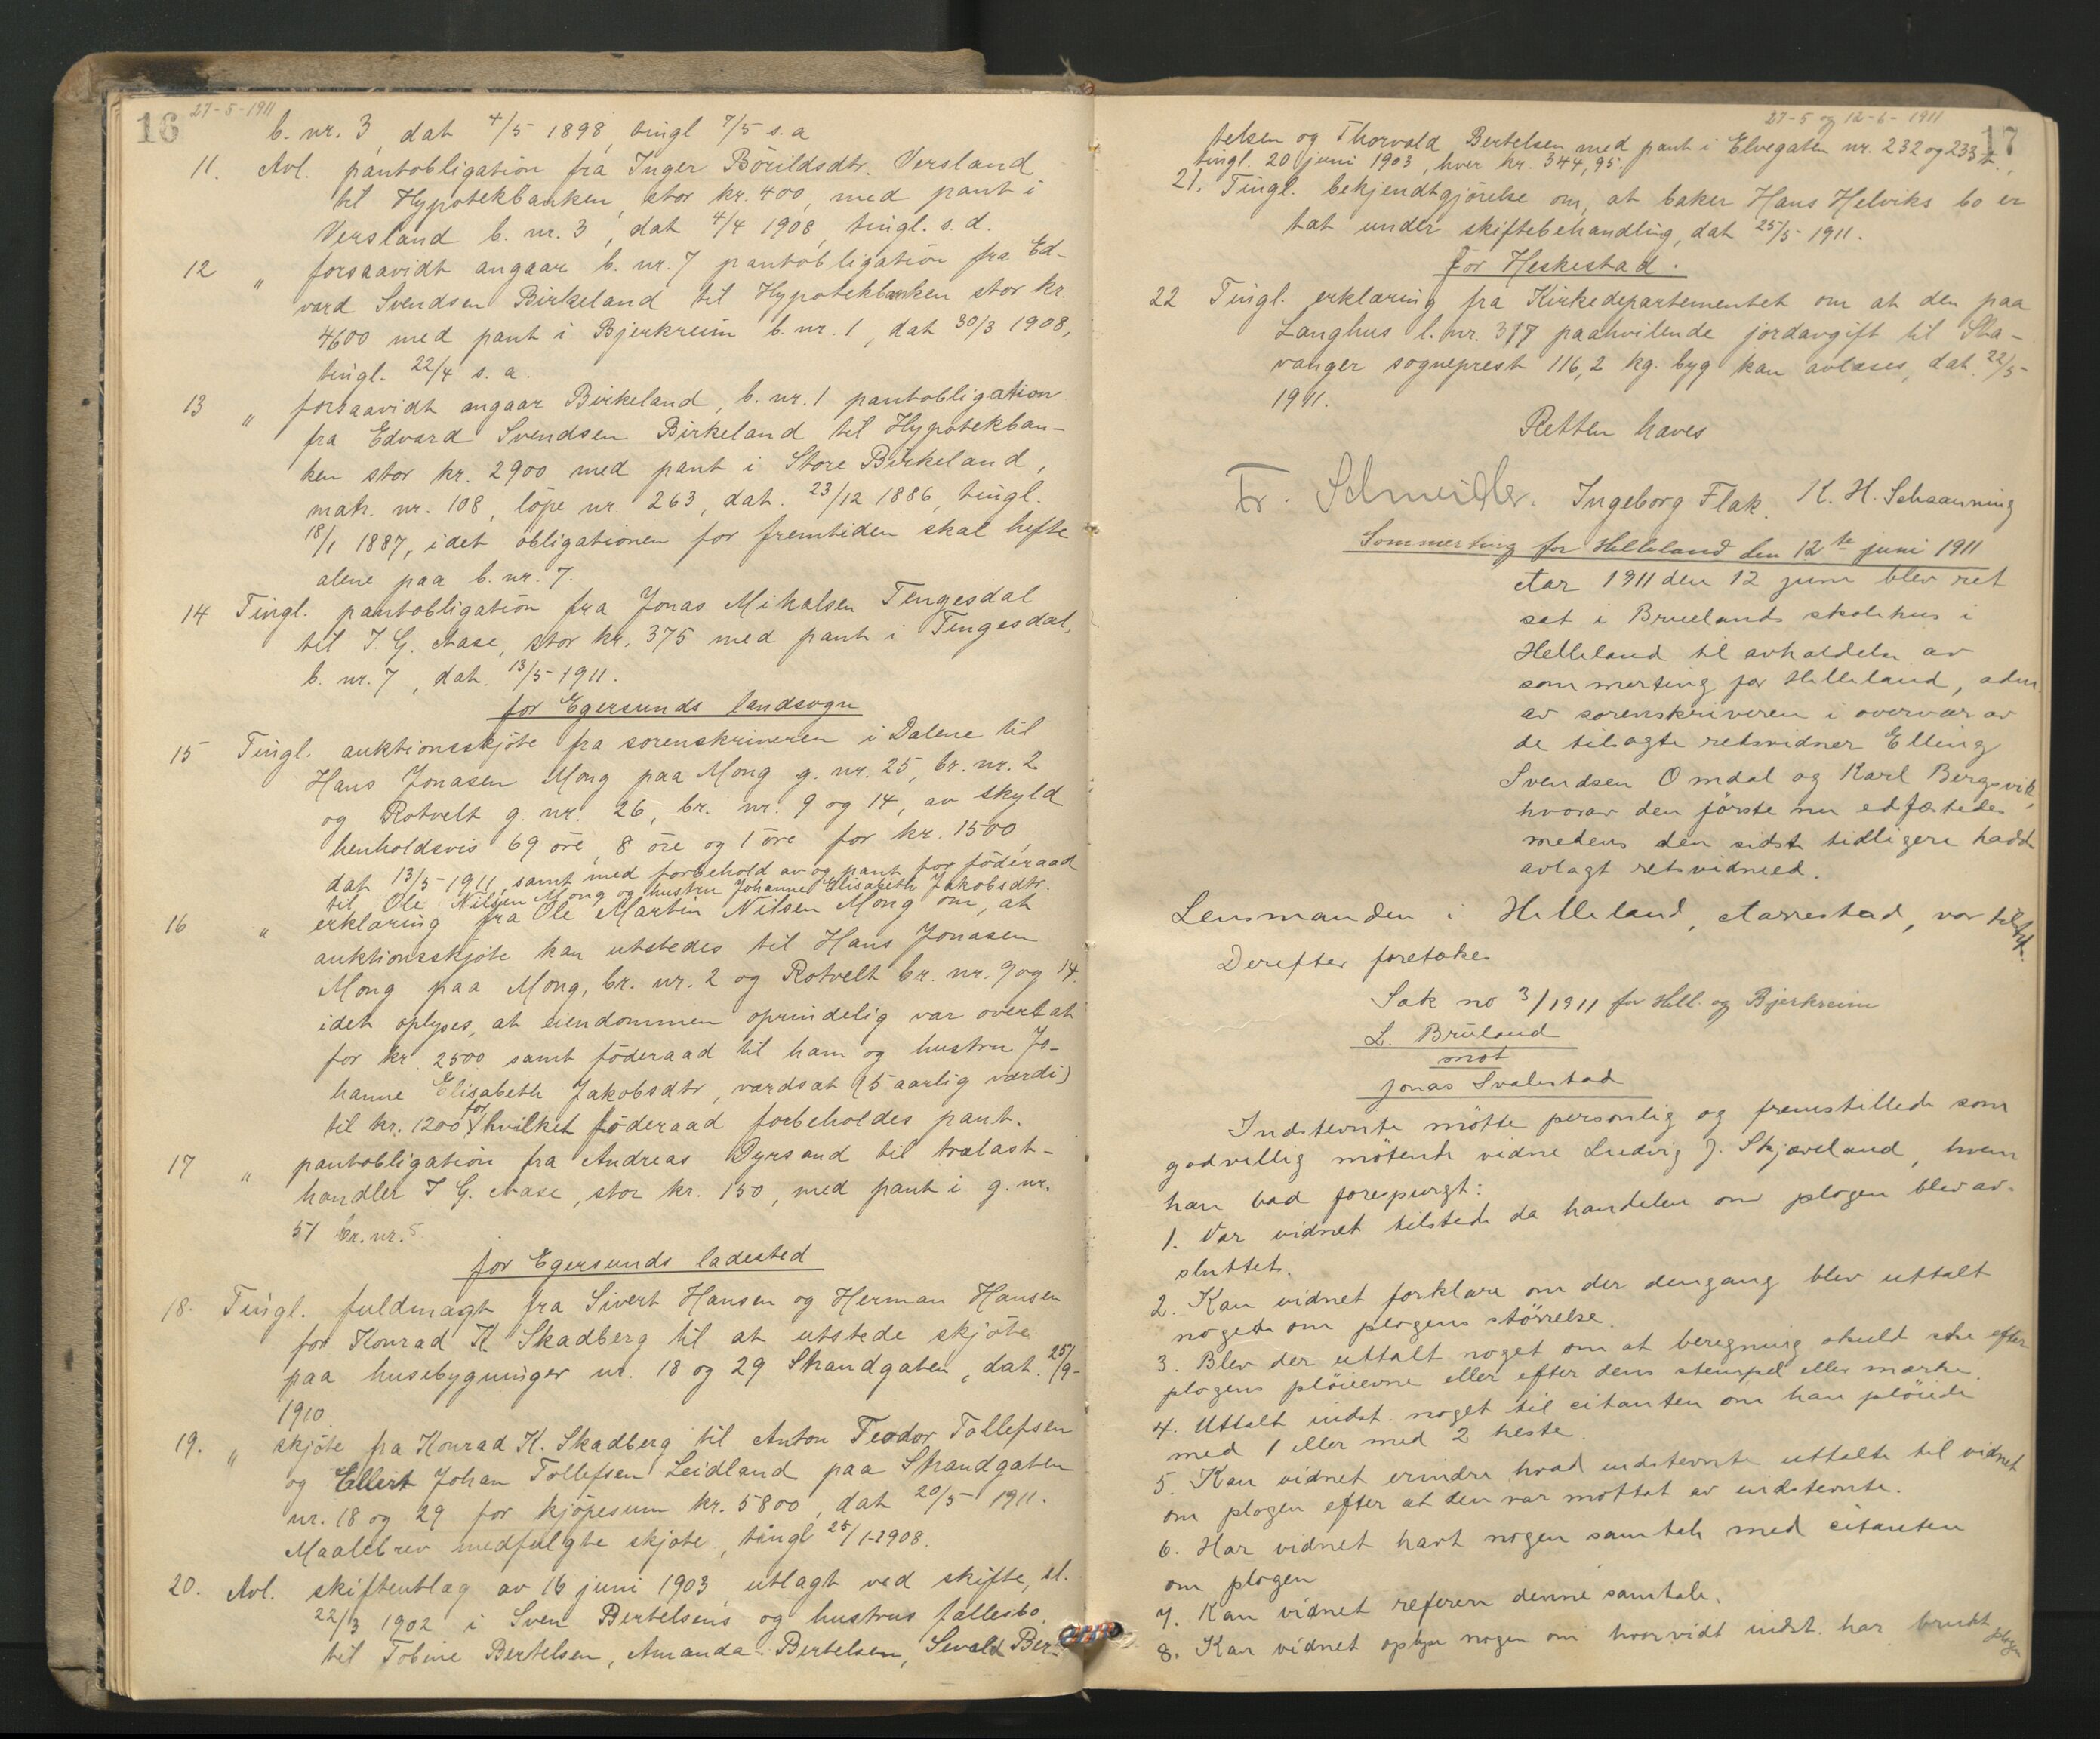 16
27-5-1911
b. nr. 3, dat 4/5 1898, tingl 7/5 s. a
11. Avl. pantobligation fra Inger Börildsdtr. Versland
til Hypotekbanken, stor kr. 400, med pant i
Versland b. nr. 3, dat 4/4 1908, tingl. s. d.
12 „ forsaavidt angaar b. nr. 7 pantobligation fra Ed-
vard Svendsen Birkeland til Hypotekbanken stor kr.
4600 med pant i Bjerkreim b. nr. 1, dat 30/3 1908,
tingl. 22/4 s. a.
13 „ forsaavidt angaar Birkeland, b. nr. 1 pantobligation
fra Edvard Svendsen Birkeland til Hypotekban-
ken stor kr. 2900 med pant i Store Birkeland,
matr. nr. 108, löpe nr. 263, dat. 23/12 1886, tingl.
18/1 1887, idet obligationen for fremtiden skal hefte
alene paa b. nr. 7.
14 Tingl. pantobligation fra Jonas Mikalsen Tengesdal
til I. G. Aase, stor kr. 375 med pant i Tengesdal,
b. nr. 7, dat. 13/5 1911.
for Egersunds landsogn
15 Tingl. auktionsskjöte fra sorenskriveren i Dalene til
Hans Jonasen Mong paa Mong g. nr. 25, br. nr. 2
og Rotvelt g. nr. 26, br. nr. 9 og 14, av skyld
henholdsvis 69 öre, 8 öre og 1 öre for kr. 1500,
dat 13/5 1911, samt med forbehold av og pant for föderaad
til Ole Nilsen Mong og hustru Johanne Elisabeth Jakobsdtr.
16 „ erklæring fra Ole Martin Nilsen Mong om, at
auktionsskjöte kan utstedes til Hans Jonasen
Mong paa Mong, br. nr. 2 og Rotvelt br. nr. 9 og 14
idet oplyses, at eiendommen oprindelig var overtat
for kr. 2500 samt föderaad til ham og hustru Jo-
hanne Elisabeth Jakobsdtr, værdsat (5 aarlig værdi)
til kr. 1200 for hvilket föderaad forbeholdes pant.
17 „ pantobligation fra Andreas Dyrsand til trælast-
handler I G. Aase, stor kr. 150, med pant i g. nr.
51 br. nr. 5
for Egersunds ladested
18. Tingl. fuldmagt fra Sivert Hansen og Herman Hansen
for Konrad K Skadberg til at utstede skjöte
paa husebygninger nr. 18 og 29 Strandgaten, dat. 25/9-
1910.
19. „ skjöte fra Konrad K. Skadberg til Anton Teodor Tollefsen
og Ellert Johan Tollefsen Leidland paa Strandgaten
nr. 18 og 29 for kjöpesum kr. 5800, dat 20/5 1911.
Maalebrev medfulgte skjöte, tingl 25/1-1908.
20. Avl. skifteutlæg av 16 juni 1903, utlagt ved skifte, sl.
22/3 1902 i Sven Bertelsens og hustrus fællesbo,
til Tobine Bertelsen, Amanda Bertelsen, Sevald Ber-
27-5 og 12-6-1911
17
telsen og Thorvald Bertelsen med pant i Elvegaten nr. 232 og 233
tingl. 20 juni 1903, hver kr. 344,95.
21. Tingl. bekjendtgjörelse om, at baker Hans Helviks bo er
tat under skiftebehandling, dat 25/5 1911.
for Heskestad.
22 Tingl. erklæring fra Kirkedepartementet om at den paa
Langhus l. nr. 317 paahvilende jordavgift til Sta-
vanger sogneprest 116,2 kg. byg kan avløses, dat. 22/5
1911.
Retten hæves
Fr. Schneider. Ingeborg Flak. K. H. Schanning
Sommerting for Helleland den 12te juni 1911
Aar 1911 den 12 juni blev ret
sat i Bruelands skolehus i
Helleland til avholdelse av
sommerting for Helleland, adm.
av sorenskriveren i overvær av
de tilsagte retsvidner Elling
Svendsen Omdal og Karl Bergsvik,
hvorav den förste nu edfæstedes
medens den sidste tidligere hadde
avlagt retsvidneed.
Lensmanden i Helleland, Aarrestad, var tilst.
Derefter foretokes
Sak no 3/1911 for Hell. og Bjerkreim
L. Brüland
mot
Jonas Svalestad
Indstevnte mötte personlig og fremstillede som
godvillig mötende vidne Ludvig J. Skjæveland, hvem
han bad forespurgt:
1. Var vidnet tilstede da handelen om plogen blev av-
sluttet.
2. Kan vidnet forklare om der dengang blev uttalt
noget om plogens störrelse.
3. Blev der uttalt noget om at beregning skulde ske efter
plogens plöieevne eller efter dens stempel eller mærke.
4. Uttalt indst. noget til citanten om han plöiede
med 1 eller med 2 heste.
5. Kan vidnet erindre hvad indstevnte uttalte til vidnet
om plogen efter at den var mottat av indstevnte.
6. Har vidnet havt nogen samtale med citanten
om plogen
7. Kan vidnet referere denne samtale.
8. Kan vidnet oplyse nogen om hvorvidt indst. har brukt plogen